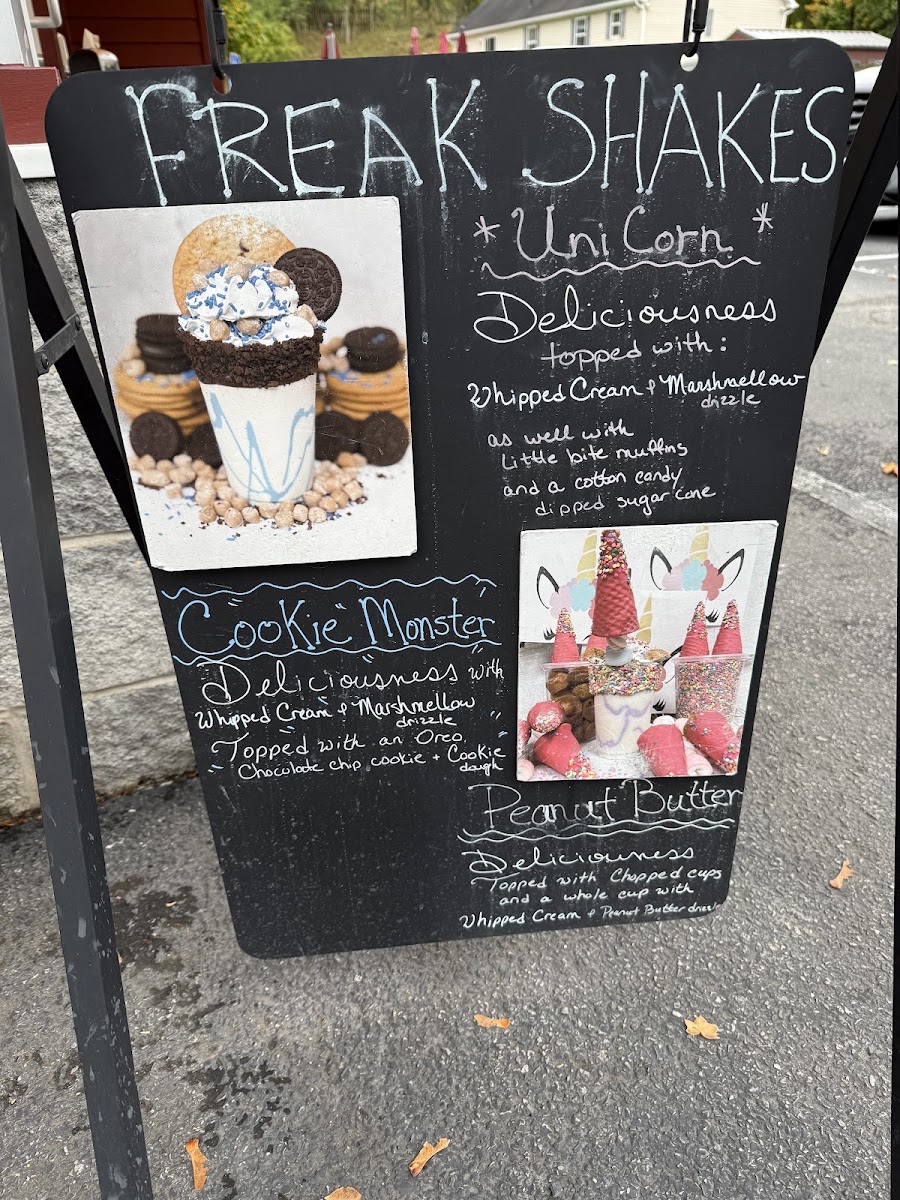 FREAK SHAKES
* UniCorn *
Deliciousness
topped with:
Whipped Cream & Marshmellow
drizzle
as well with
Little bite muffins
and a cotton candy
dipped sugar cone
"Cookie" Monster
Deliciousness with
Whipped Cream & Marshmellow
drizzle
Topped with an Oreo,
Chocolate chip cookie + Cookie
dough
Peanut Butter
Deliciouness
Topped with Chopped cups
and a whole cup with
Whipped Cream & Peanut Butter drizzle